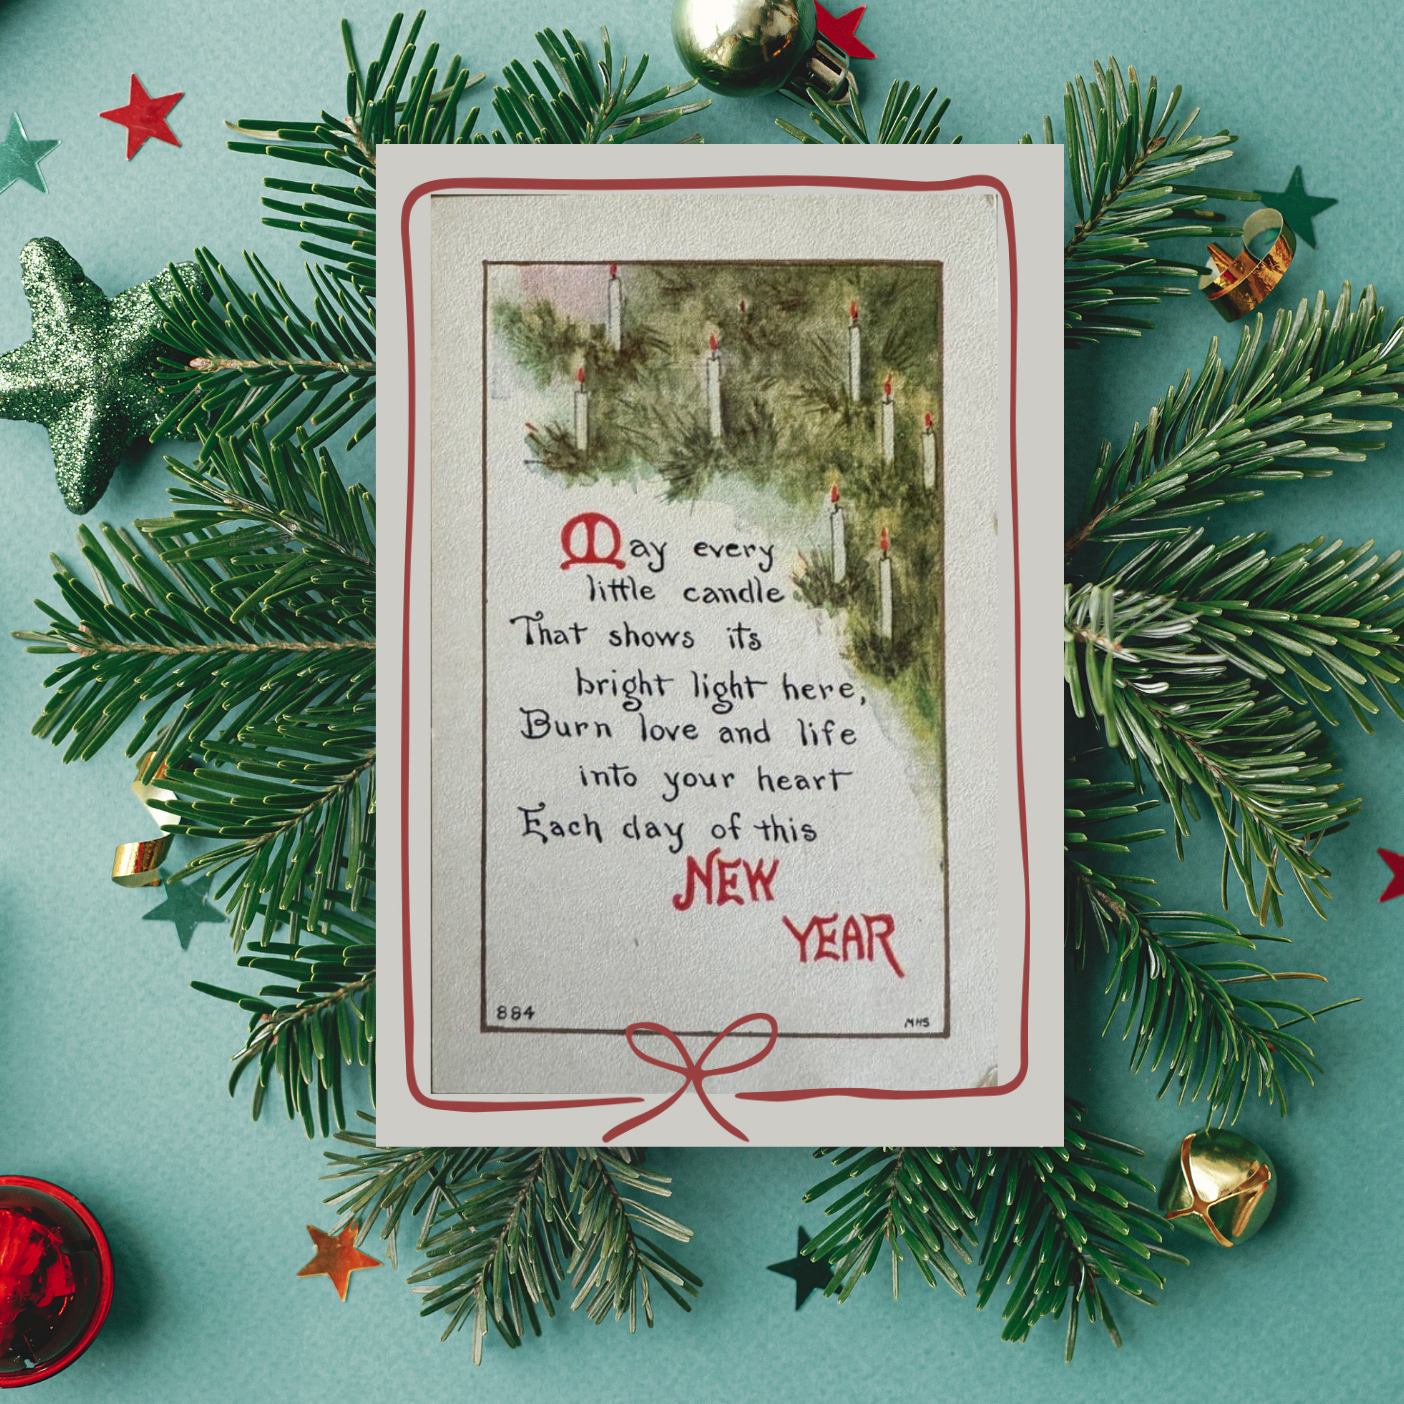 May every
little candle
That shows its
bright light here,
Burn love and life
into your heart
Each day of this
NEW
YEAR
884
MHS